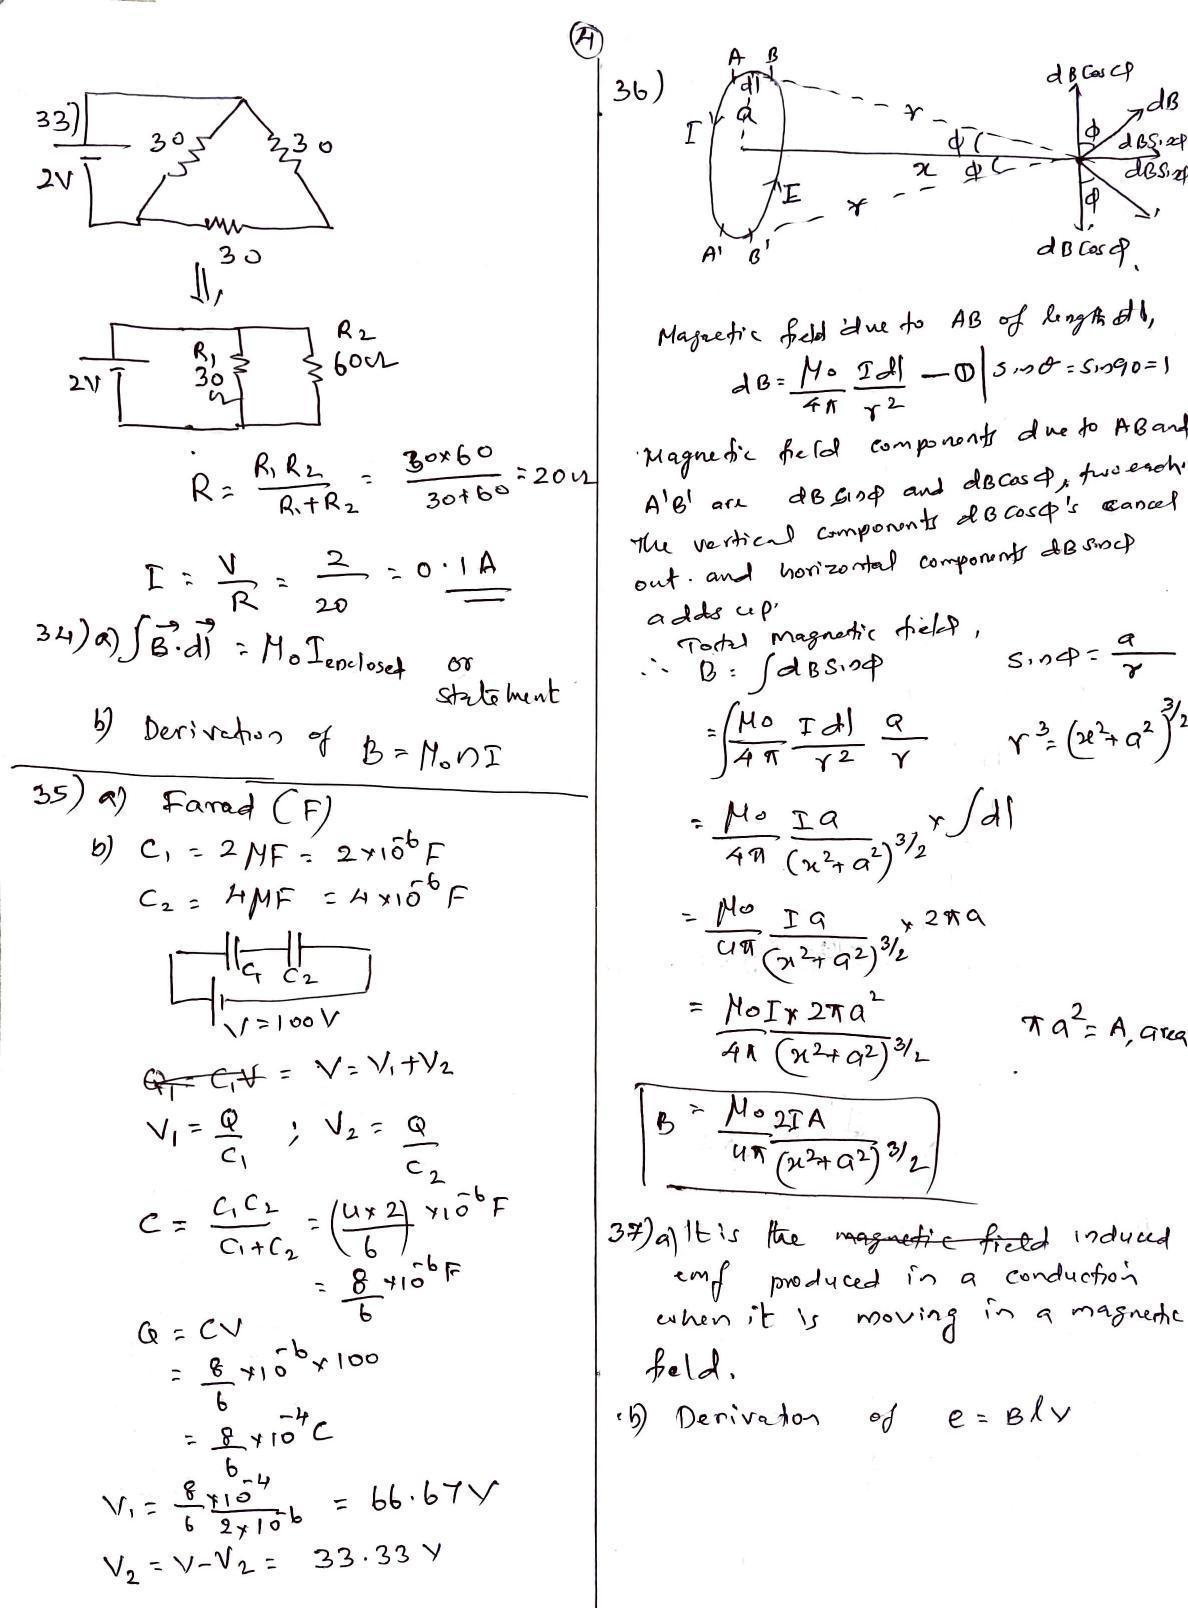 4
33)
30
30
2V
30
⇓
R1
30
Ω
R2
60Ω
2V
R = R1 R2 / R1+R2 = 30×60 / 30+60 = 20Ω
I = V/R = 2/20 = 0.1 A
34) a) ∫B⃗.dl⃗ = μ0 Ienclosed or
statement
b) Derivation of B = μ0 n I
35) a) Farad (F)
b) C1 = 2μF = 2×10^-6 F
C2 = 4μF = 4×10^-6 F
C1 C2
V=100V
Q1 = C1V = V = V1+V2
V1 = Q/C1 ; V2 = Q/C2
C = C1C2 / C1+C2 = (4×2 / 6) ×10^-6 F
= 8/6 ×10^-6 F
Q = CV
= 8/6 ×10^-6 × 100
= 8/6 ×10^-4 C
V1 = 8/6 ×10^-4 / 2×10^-6 = 66.67V
V2 = V-V2 = 33.33 V
36)
A B
dl
a
I
r
x
ϕ
ϕ
I
r
A' B'
dB Cosϕ
dB
ϕ
dBSinϕ
dBSinϕ
ϕ
dB Cosϕ
Magnetic field due to AB of length dl,
dB = μ0/4π Idl/r^2 — ① | sinθ = sin90 = 1
Magnetic field components due to AB and
A'B' are dB sinϕ and dBcosϕ, two each.
The vertical components dB cosϕ's cancel
out. and horizontal components dB sinϕ
adds up.
Total magnetic field,
∴ B = ∫dBsinϕ sinϕ = a/r
= ∫μ0/4π Idl/r^2 a/r r^3 = (x^2+a^2)^3/2
= μ0/4π Ia/(x^2+a^2)^3/2 × ∫dl
= μ0/4π Ia/(x^2+a^2)^3/2 × 2πa
= μ0I × 2πa^2 / 4π (x^2+a^2)^3/2 πa^2 = A, area
B = μ0/4π 2IA/(x^2+a^2)^3/2
37) a) It is the magnetic field induced
emf produced in a conduction
when it is moving in a magnetic
field.
b) Derivaton of e = Blv